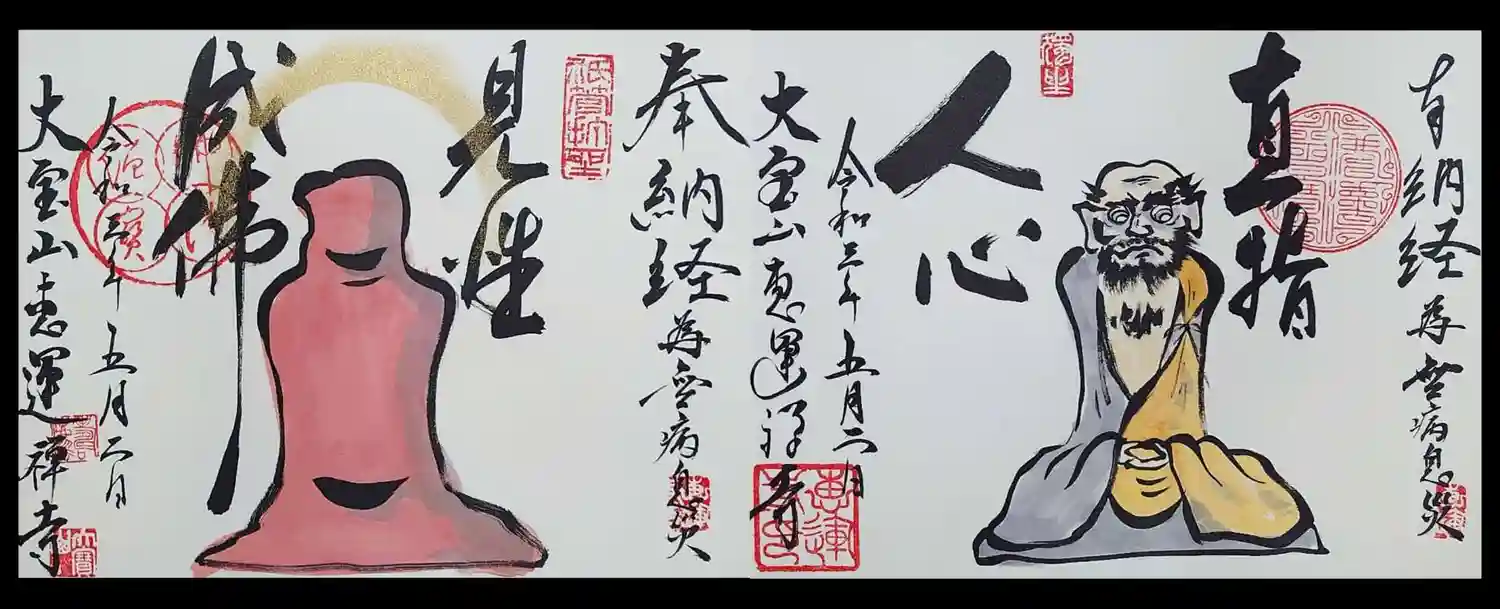 納経 為無病息災
直指
人心
令和三年五月二日
大宝山恵運禅寺
奉納経為無病息災
祇管打坐
見性
成佛
令和三年五月二日
大宝山恵運禅寺